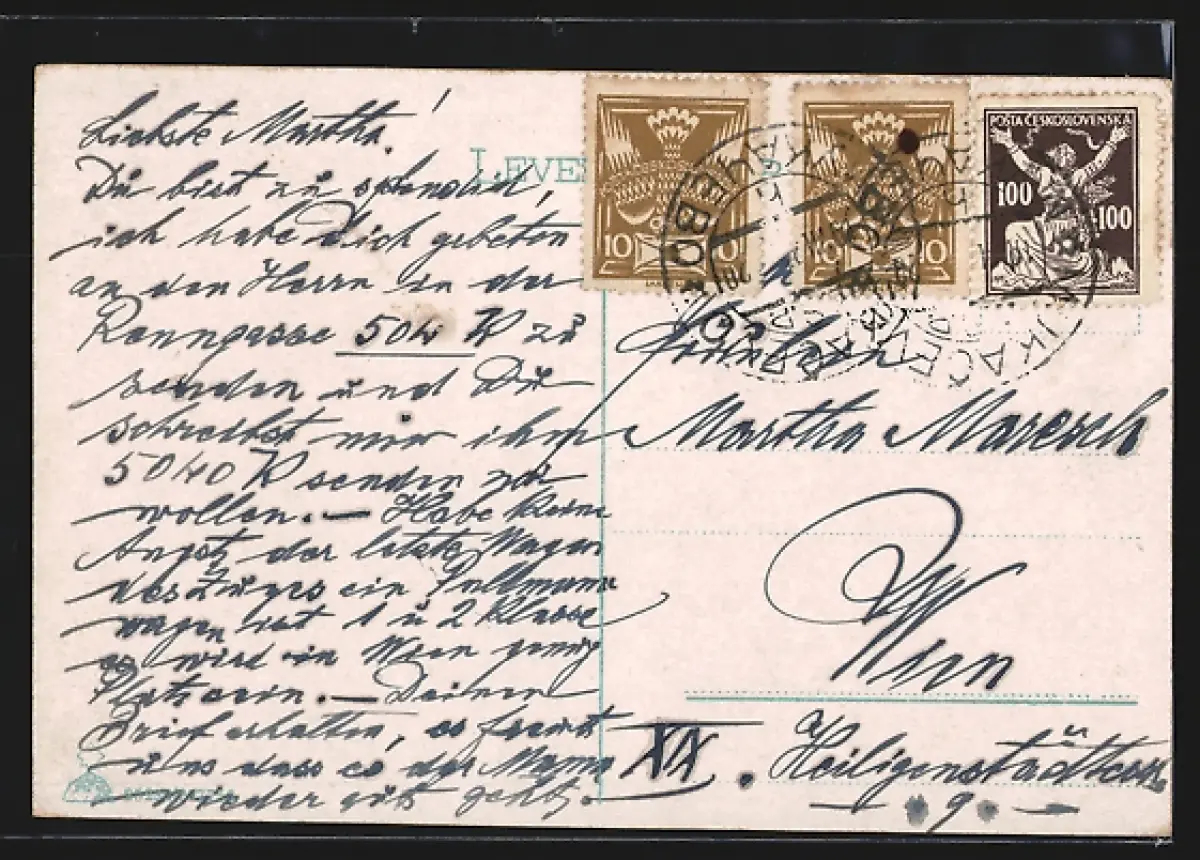 Liebste Martha!
Du bist zu splendid,
ich habe Dich gebeten
an den Herrn in der
Renngasse 504 K zu
senden und Du
schreibst mir ihm
5040 K senden zu
wollen. — Habe keine
Angst, der letzte Wagen
des Zuges ein Pullmann
wagen ist 1 u 2 Klasse
es wird in Wien genug
Platz sein. — Deinen
Brief erhalten, es freut
uns dass es der Mama
wieder gut geht.
LEVE
POŠTA ČESKOSLOVENSKÁ
10 10
10 10
100 100
Martha Maresch
Wien
XIX. Heiligenstädterstr
— 9. —